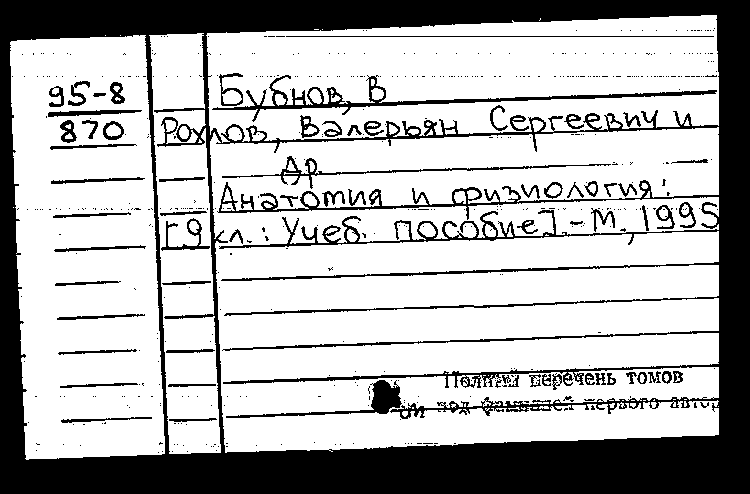 95-8 Бубнов, В
870 Рохлов, Валерьян Сергеевич и
др.
Анатомия и физиология:
[9 кл.: Учеб. пособие]. - М., 1995
Полный перечень томов
см под фамилией первого автор